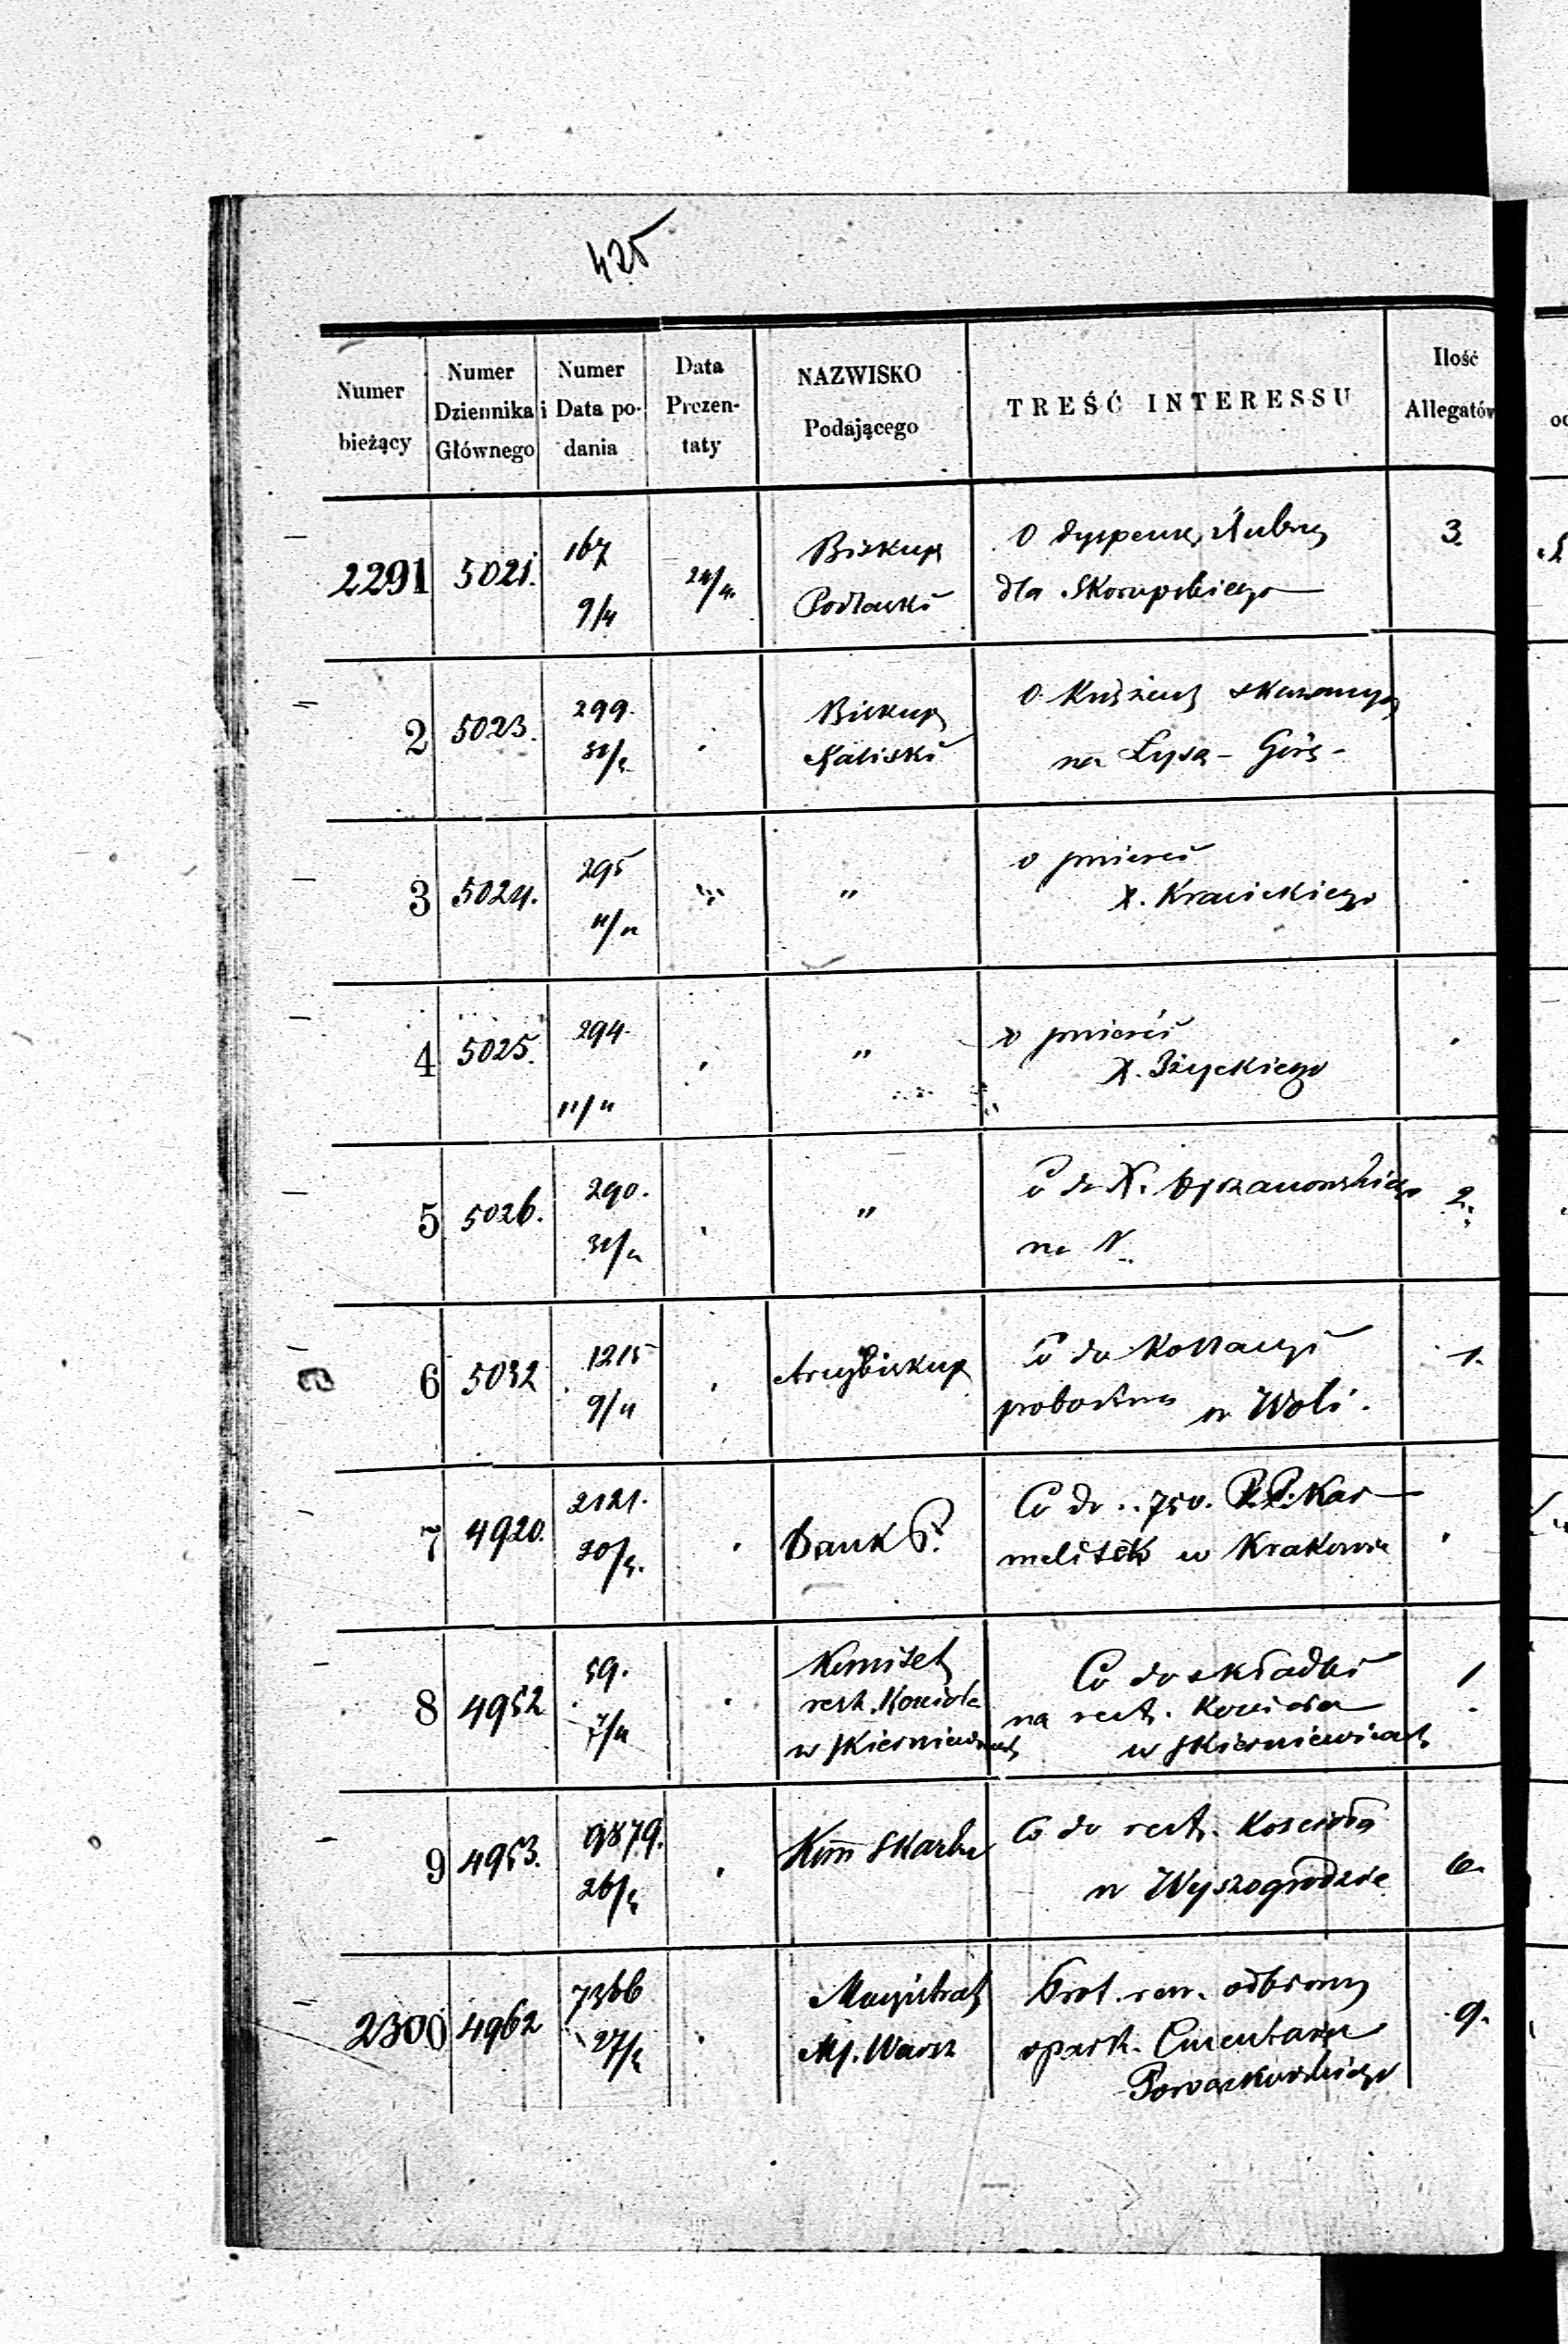 425
Numer bieżący
Numer Dziennika Głównego
Numer i Data podania
Data Prezentaty
NAZWISKO Podającego
TREŚĆ INTERESSU
Ilość Allegatów
2291 5021. 167 9/4 24/4 Biskup Podlaski O dyspensę ślubną dla Skorupskiego 3.
2 5023. 299. Biskup Kaliski O Księży skazanych na Łysą-Górę
3 5024. 295 11/4 " o śmierci X. Kracickiego
4 5025. 294. 11/4 " o śmierci X. Iżyckiego
5 5026. 290. " Co do X. na N. 2.
6 5032 1215 9/4 Arcybiskup Co do Kollacyi probostwa w Woli. 1.
7 4920. 2121. Bank P. Co do 750. P.P. Karmelitek w Krakowie
8 4952 59. 7/4 Komitet rest. Kościoła w Skierniewicach Co do składki na rest. Kościoła w Skierniewicach 1
9 4953. 9879. Kom̄ Skarbu Co do rest. Kościoła w Wyszogrodzie 6.
2300 4962 7366 Magistrat M. Warsz Prot. rew. odbiorczy Cmentarza Powązkowskiego 9.